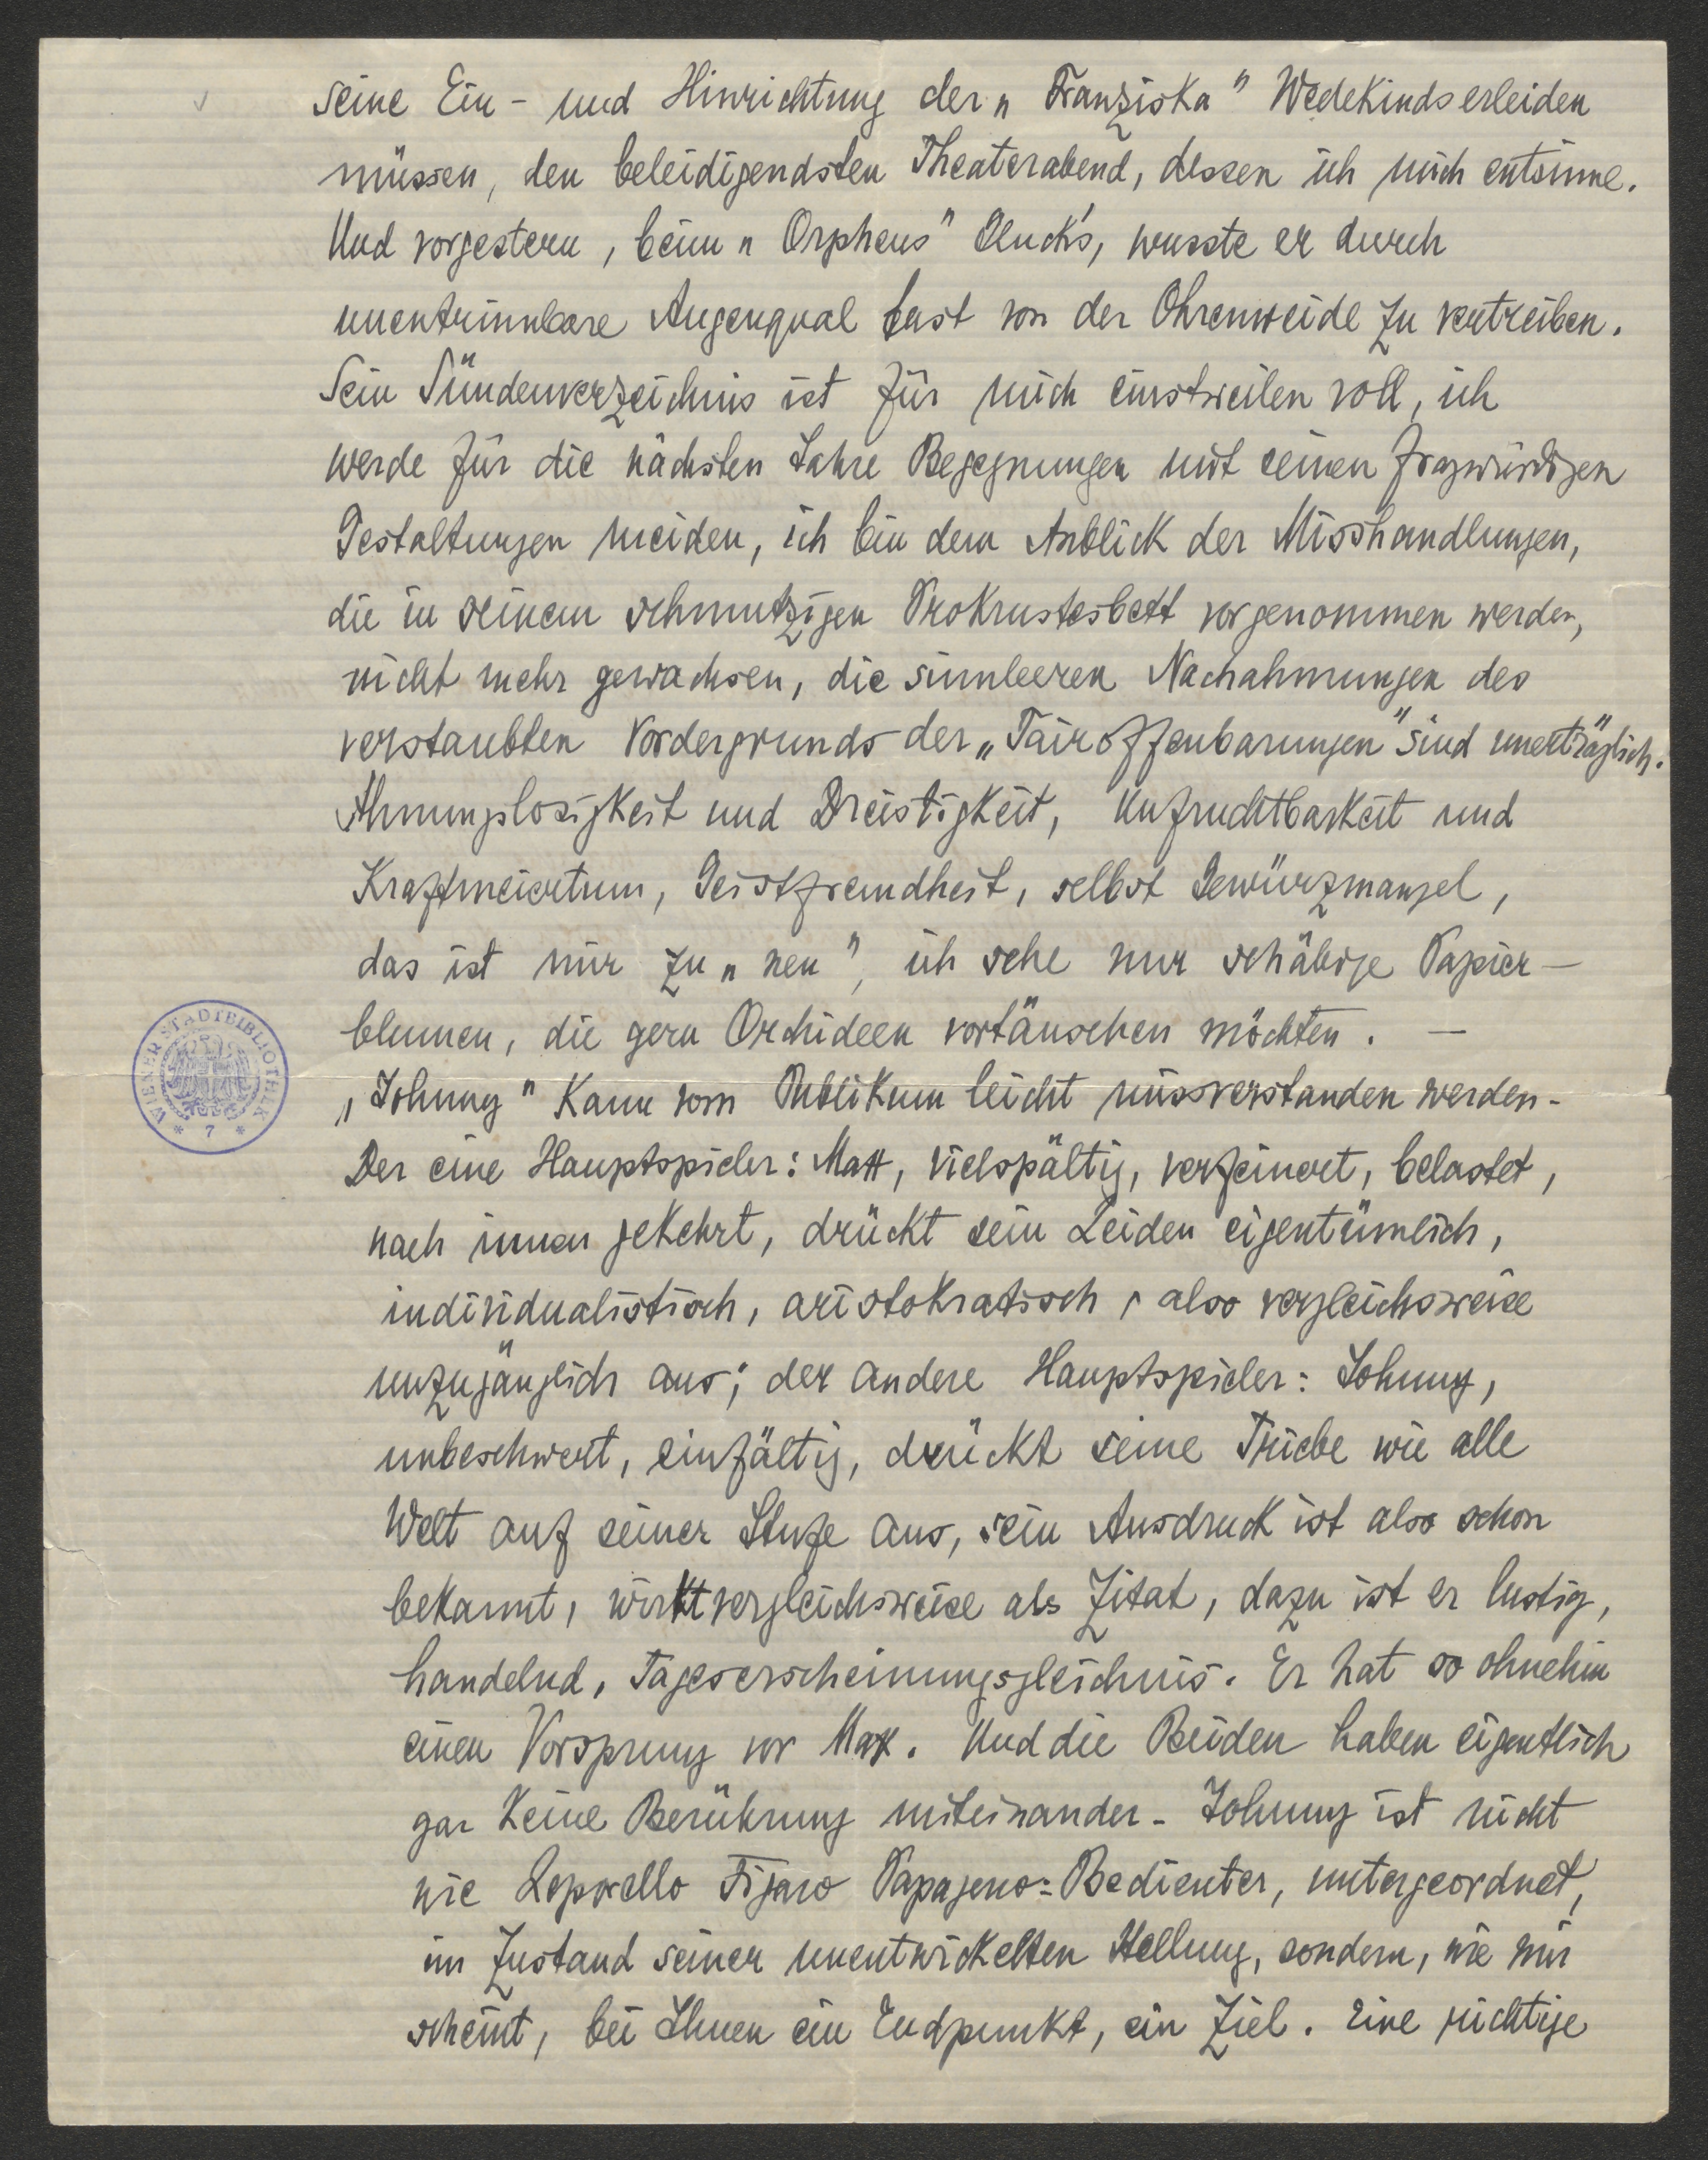 seine Ein- und Hinrichtung der „Franziska" Wedekinds erleiden
müssen, den beleidigendsten Theaterabend, dessen ich mich entsinne.
Und vorgestern, beim „Orpheus" Gluck's, wusste er durch
unentrinnbare Augenqual fast von der Ohrenweide zu vertreiben.
Sein Sündenverzeichnis ist für mich einstweilen voll, ich
werde für die nächsten Jahre Begegnungen mit seinen fragwürdigen
Gestaltungen meiden, ich bin dem Anblick der Misshandlungen,
die in seinem schmutzigen Prokrustesbett vorgenommen werden,
nicht mehr gewachsen, die sinnleeren Nachahmungen des
verstaubten Vordergrunds der „Tairoffenbarungen" sind unerträglich.
Ahnungslosigkeit und Dreistigkeit, Unfruchtbarkeit und
Kraftmeiertum, Geistfremdheit, selbst Gewürzmangel,
das ist mir zu „neu", ich sehe nur schäbige Papier-
blumen, die gern Orchideen vortäuschen möchten. —
„Johnny" kann vom Publikum leicht missverstanden werden.
Der eine Hauptspieler: Max, vielspältig, verfeinert, belastet,
nach innen gekehrt, drückt sein Leiden eigentümlich,
individualistisch, aristokratisch, also vergleichsweise
unzugänglich aus; der andere Hauptspieler: Johnny,
unbeschwert, einfältig, drückt seine Triebe wie alle
Welt auf seiner Stufe aus, sein Ausdruck ist also schon
bekannt, wirkt vergleichsweise als Zitat, dazu ist er lustig,
handelnd, Tageserscheinungsgleichnis. Er hat so ohnehin
einen Vorsprung vor Max. Und die Beiden haben eigentlich
gar keine Berührung miteinander. Johnny ist nicht
wie Leporello Figaro Papageno: Bedienter, untergeordnet,
im Zustand seiner unentwickelten Stellung, sondern, wie mir
scheint, bei Ihnen ein Endpunkt, ein Ziel. Eine richtige
WIENER STADTBIBLIOTHEK
* 7 *